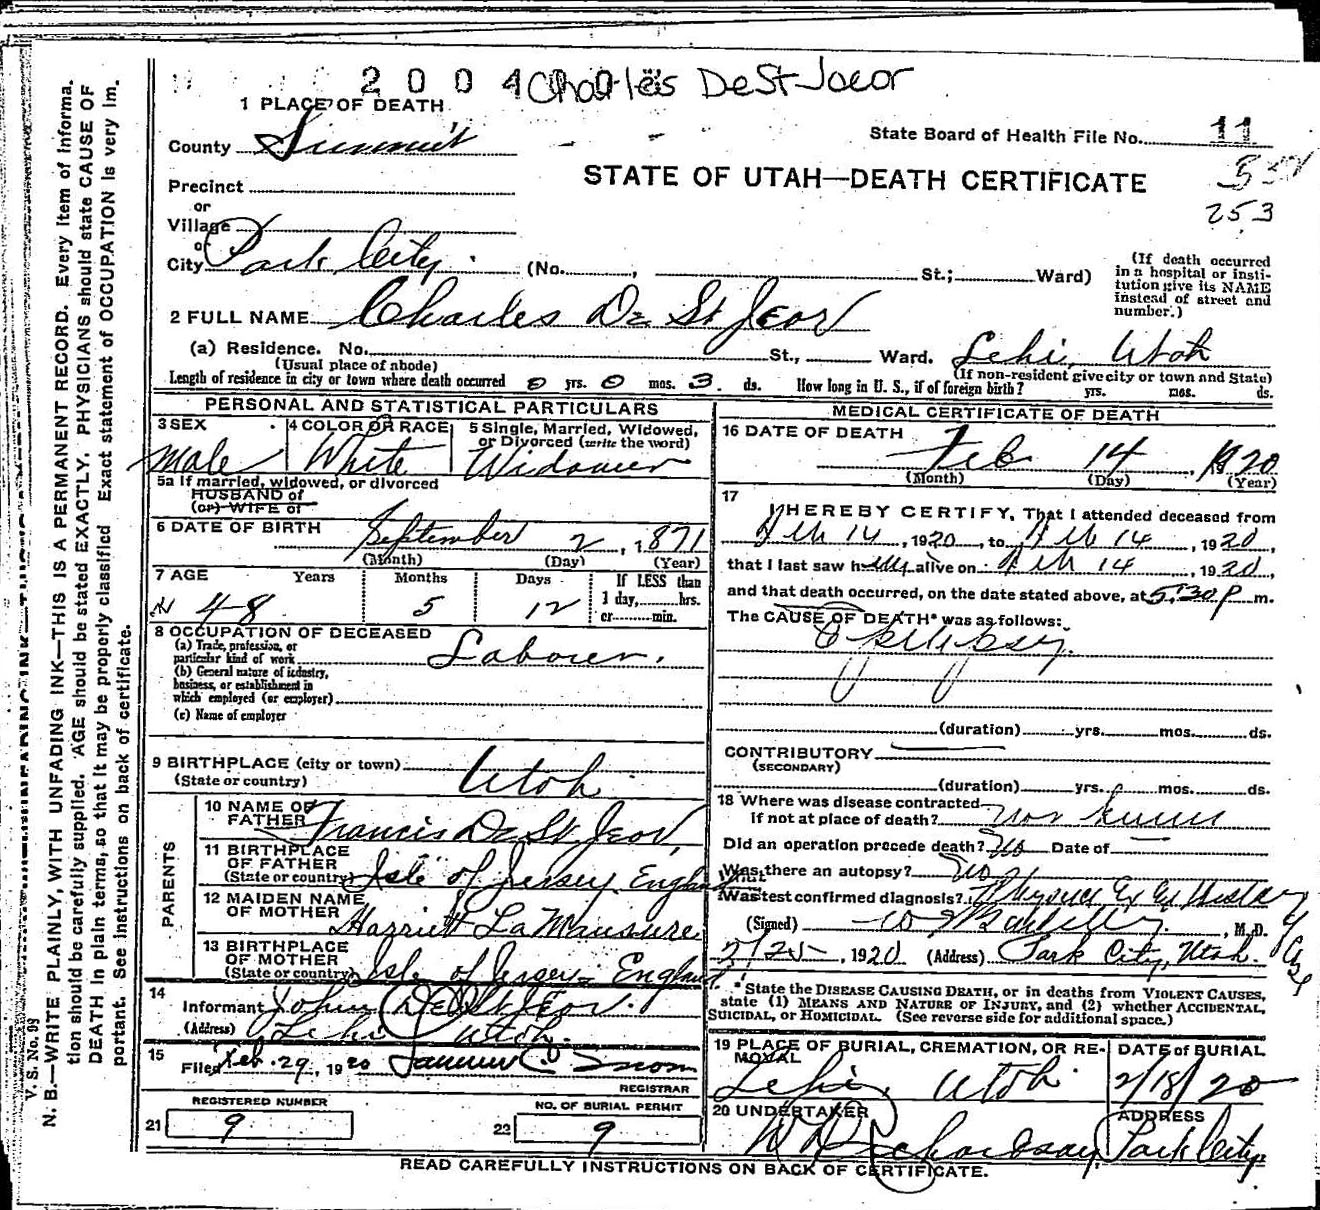 2004 Charles DeStJeor
1 PLACE OF DEATH
County Summit
State Board of Health File No. 11
STATE OF UTAH—DEATH CERTIFICATE
253
Precinct
or
Village
or
City Park City (No. , St.; Ward)
(If death occurred
in a hospital or insti-
tution give its NAME
instead of street and
number.)
2 FULL NAME Charles De St Jeor
(a) Residence. No. St., Ward. Lehi, Utah
(Usual place of abode) (If non-resident give city or town and State)
Length of residence in city or town where death occurred 0 yrs. 0 mos. 3 ds. How long in U. S., if of foreign birth? yrs. mos. ds.
PERSONAL AND STATISTICAL PARTICULARS
3 SEX 4 COLOR OR RACE 5 Single, Married, Widowed,
or Divorced (write the word)
Male White Widower
5a If married, widowed, or divorced
HUSBAND of
(or) WIFE of
6 DATE OF BIRTH September 2, 1871
(Month) (Day) (Year)
7 AGE Years Months Days If LESS than
1 day, hrs.
or min.
48 5 12
8 OCCUPATION OF DECEASED
(a) Trade, profession, or
particular kind of work Laborer.
(b) General nature of industry,
business, or establishment in
which employed (or employer)
(c) Name of employer
9 BIRTHPLACE (city or town)
(State or country) Utah
PARENTS
10 NAME OF
FATHER Francis De St Jeor,
11 BIRTHPLACE
OF FATHER
(State or country) Isle of Jersey England
12 MAIDEN NAME
OF MOTHER Harriett LaMaussure
13 BIRTHPLACE
OF MOTHER
(State or country) Isle of Jersey England
14
Informant John De St Jeor.
(Address) Lehi Utah.
15
Filed Feb. 29, 1920 Snow
REGISTRAR
REGISTERED NUMBER
21 9
NO. OF BURIAL PERMIT
22 9
MEDICAL CERTIFICATE OF DEATH
16 DATE OF DEATH
Feb 14, 1920
(Month) (Day) (Year)
17
I HEREBY CERTIFY, That I attended deceased from
Feb 14, 1920, to Feb 14, 1920,
that I last saw him alive on Feb 14, 1920,
and that death occurred, on the date stated above, at 5:30 P m.
The CAUSE OF DEATH* was as follows:
Epilepsy.
(duration) yrs. mos. ds.
CONTRIBUTORY
(SECONDARY)
(duration) yrs. mos. ds.
18 Where was disease contracted
if not at place of death? not known
Did an operation precede death? No Date of —
Was there an autopsy? No
What
Was test confirmed diagnosis? Physical Ex & History
(Signed) , M.D.
2/25, 1920 (Address) Park City, Utah.
*State the DISEASE CAUSING DEATH, or in deaths from VIOLENT CAUSES,
state (1) MEANS AND NATURE OF INJURY, and (2) whether ACCIDENTAL,
SUICIDAL, or HOMICIDAL. (See reverse side for additional space.)
19 PLACE OF BURIAL, CREMATION, OR RE-
MOVAL
DATE of BURIAL
Lehi, Utah. 2/18/20
20 UNDERTAKER ADDRESS
Richardson, Park City.
READ CAREFULLY INSTRUCTIONS ON BACK OF CERTIFICATE.
V. S. No. 98
N. B.—WRITE PLAINLY, WITH UNFADING INK—THIS IS A PERMANENT RECORD. Every item of informa-
tion should be carefully supplied. AGE should be stated EXACTLY. PHYSICIANS should state CAUSE OF
DEATH in plain terms, so that it may be properly classified. Exact statement of OCCUPATION is very im-
portant. See instructions on back of certificate.